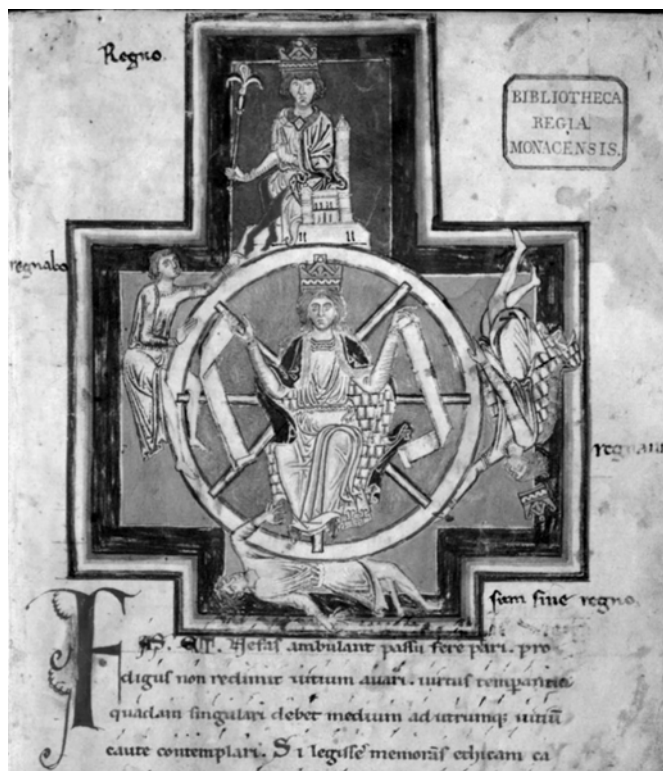 Regno.
BIBLIOTHECA
REGIA
MONACENSIS.
regnabo
regnaui
sum sine regno.
FAS ET Nefas ambulant passu fere pari. pro
digus non redimit uitium auari. uirtus temperantia
quadam singulari debet medium ad utrumq; uitiū
caute contemplari. Si legisse memoras ethicam ca